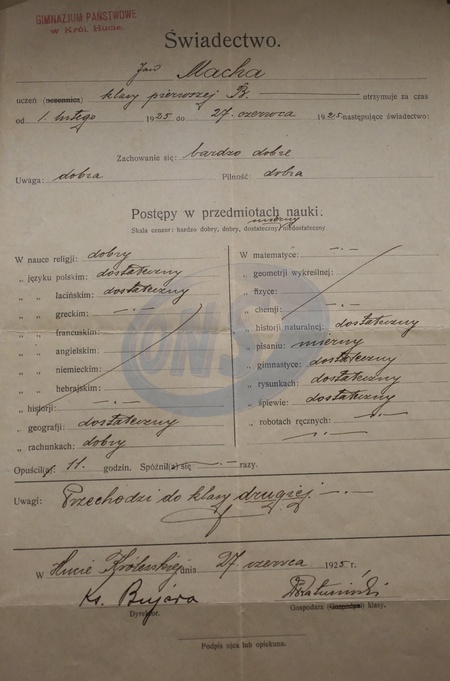 GIMNAZJUM PAŃSTWOWE
w Król. Hucie.
Świadectwo.
Jan Macha
uczeń (uczennica) klasy pierwszej B. otrzymuje za czas
od 1. lutego 1925 do 27. czerwca 1925 następujące świadectwo:
Zachowanie się: bardzo dobre
Uwaga: dobra Pilność: dobra
Postępy w przedmiotach nauki:
mierny
Skala cenzur: bardzo dobry, dobry, dostateczny, niedostateczny
W nauce religji: dobry
„ języku polskim: dostateczny
„ „ łacińskim: dostateczny
„ „ greckim: —·—
„ „ francuskim:
„ „ angielskim:
„ „ niemieckim:
„ „ hebrajskim:
„ historji: —·—
„ geografji: dostateczny
„ rachunkach: dobry
W matematyce: —·—
„ geometrji wykreślnej:
„ fizyce:
„ chemji: —·—
„ historji naturalnej: dostateczny
„ pisaniu: mierny
„ gimnastyce: dostateczny
„ rysunkach: dostateczny
„ śpiewie: dostateczny
„ robotach ręcznych: —·—
—·—
ONS
Opuścił(a) 11. godzin. Spóźnił(a) się —·— razy.
Uwagi: Przechodzi do klasy drugiej. —·—
W Hucie Królewskiej dnia 27 czerwca 1925 r.
Ks. Bujara
Dyrektor. Gospodarz (Gospodyni) klasy.
Podpis ojca lub opiekuna.